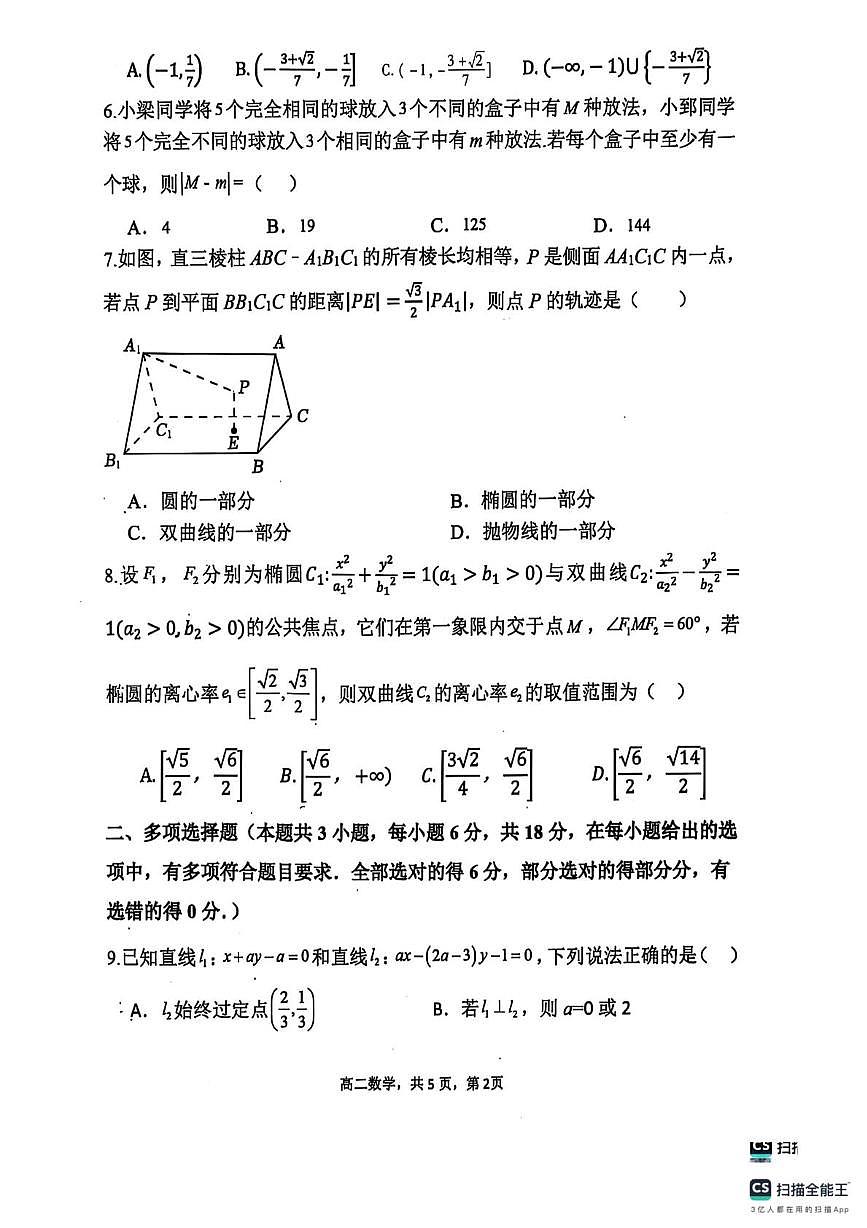 A.(−1,1/7) B.(−(3+√2)/7,−1/7] C.(−1,−(3+√2)/7] D.(−∞,−1)∪{−(3+√2)/7}
6.小梁同学将5个完全相同的球放入3个不同的盒子中有M种放法，小郅同学
将5个完全不同的球放入3个相同的盒子中有m种放法.若每个盒子中至少有一
个球，则|M - m|=（ ）
A．4 B．19 C．125 D．144
7.如图，直三棱柱ABC－A₁B₁C₁的所有棱长均相等，P是侧面AA₁C₁C内一点，
若点P到平面BB₁C₁C的距离|PE| = √3/2|PA₁|，则点P的轨迹是（ ）
A₁ A
P
C₁ C
E
B₁ B
A．圆的一部分 B．椭圆的一部分
C．双曲线的一部分 D．抛物线的一部分
8.设F₁，F₂分别为椭圆C₁:x²/a₁²+y²/b₁²=1(a₁>b₁>0)与双曲线C₂:x²/a₂²−y²/b₂²=
1(a₂>0,b₂>0)的公共焦点，它们在第一象限内交于点M，∠F₁MF₂=60°，若
椭圆的离心率e₁∈[√2/2,√3/2]，则双曲线C₂的离心率e₂的取值范围为（ ）
A.[√5/2，√6/2] B.[√6/2，+∞) C.[3√2/4，√6/2] D.[√6/2，√14/2]
二、多项选择题（本题共3小题，每小题6分，共18分，在每小题给出的选
项中，有多项符合题目要求．全部选对的得6分，部分选对的得部分分，有
选错的得0分.）
9.已知直线l₁：x+ay−a=0和直线l₂：ax−(2a−3)y−1=0，下列说法正确的是（ ）
A．l₂始终过定点(2/3,1/3) B．若l₁⊥l₂，则a=0或2
高二数学，共5页，第2页
CS 扫描
CS 扫描全能王
3亿人都在用的扫描App